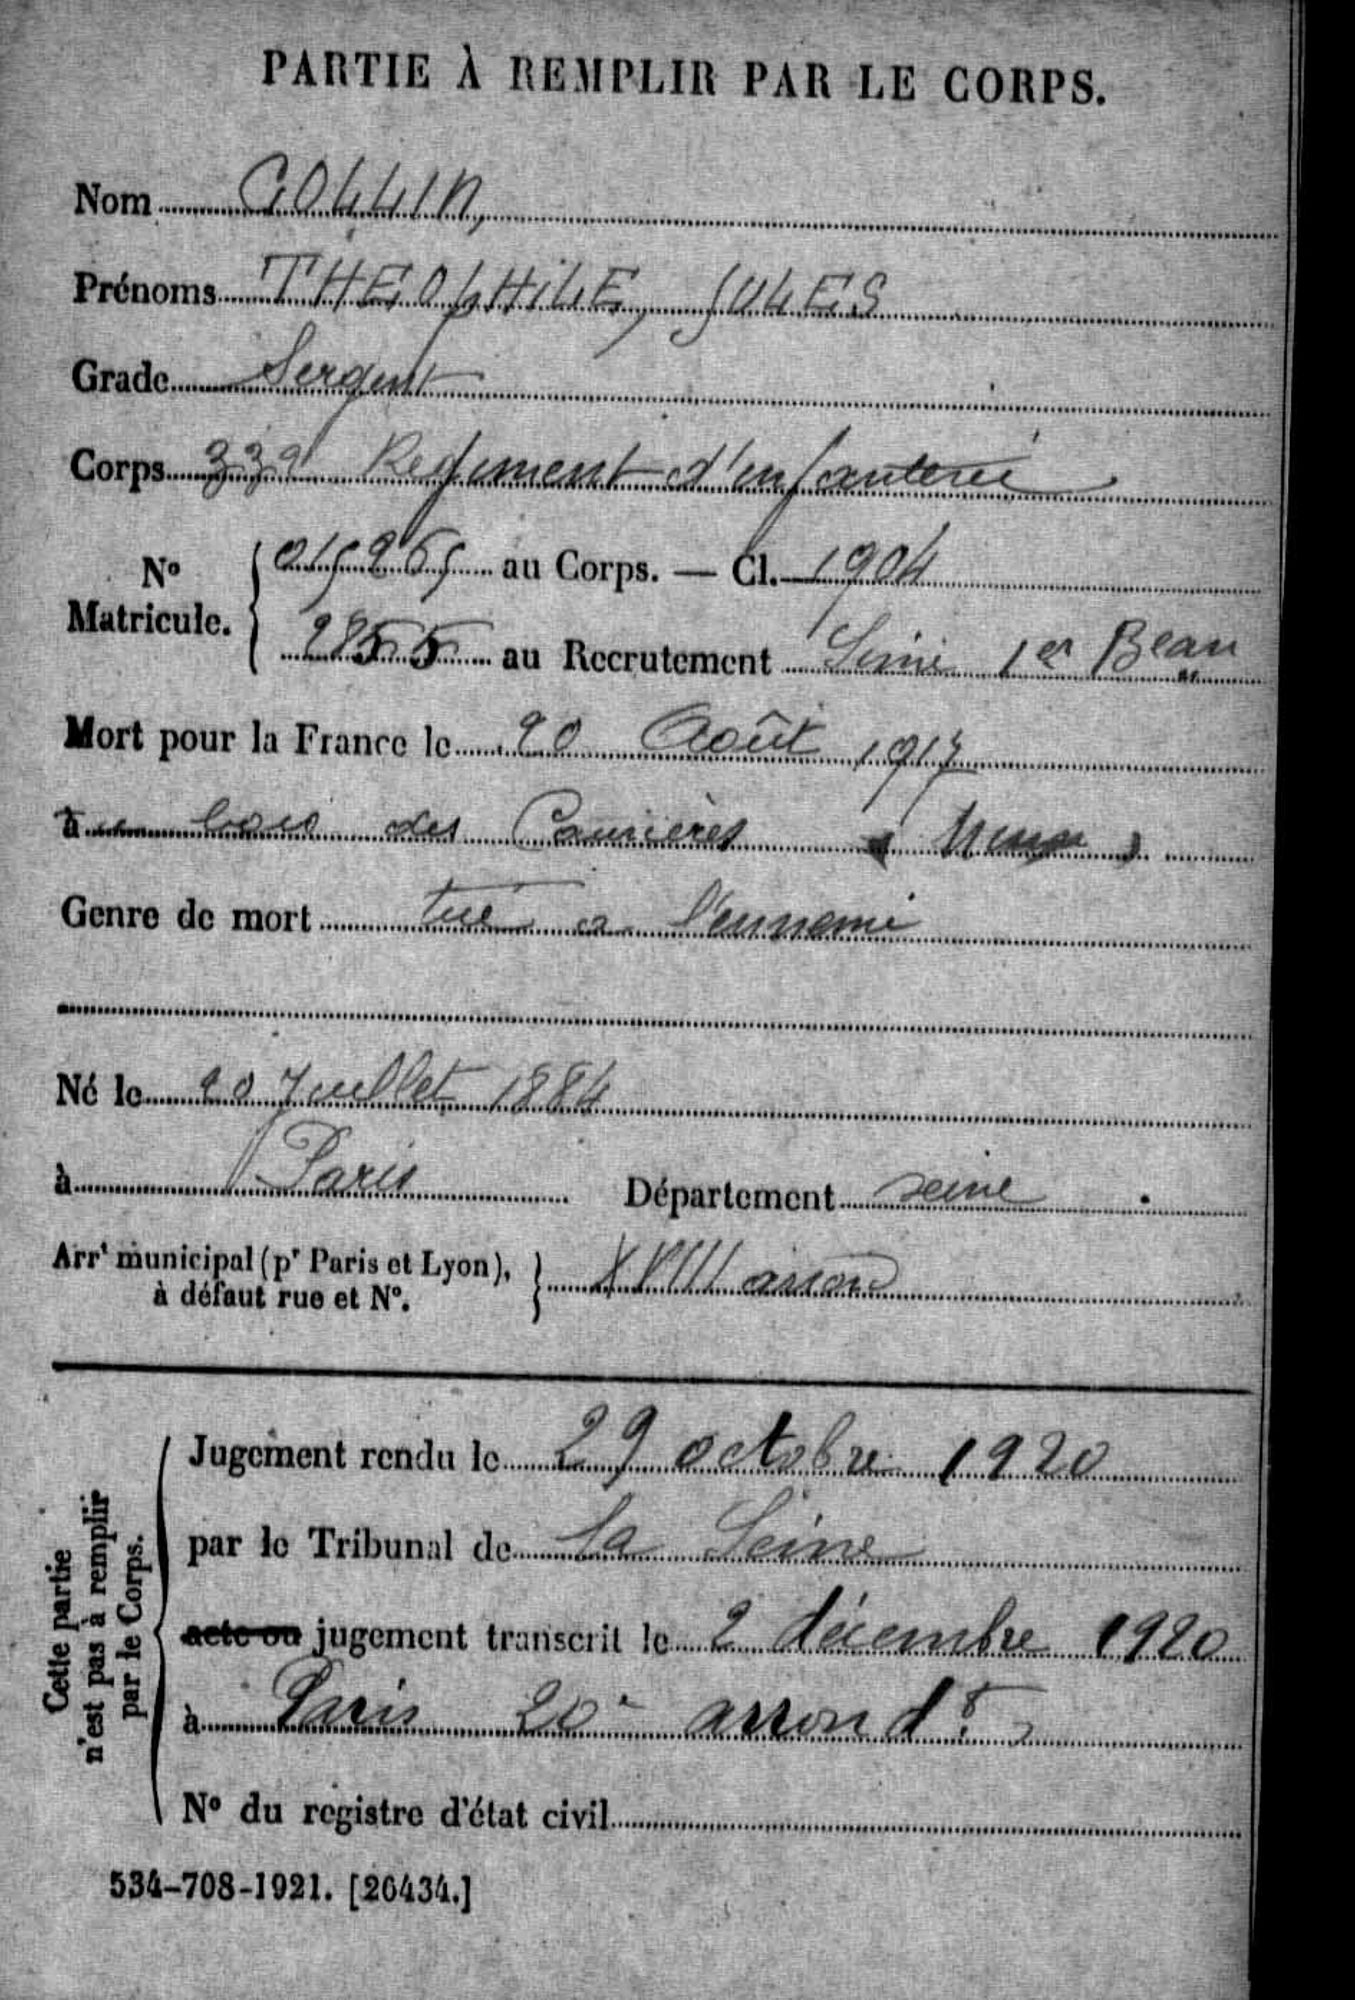 PARTIE À REMPLIR PAR LE CORPS.
Nom COLLIN,
Prénoms THEOPHILE, JULES
Grade Sergent
Corps 332e Regiment d'infanterie
No Matricule. 015265 au Corps. — Cl. 1904
2855 au Recrutement Seine 1er Beau
Mort pour la France le 20 Août 1917
à bois des Carrières (Meuse)
Genre de mort tué a l'ennemi
Né le 20 Juillet 1884
à Paris Département seine
Arrt municipal (pr Paris et Lyon), à défaut rue et No. XVIII arron
Cette partie n'est pas à remplir par le Corps.
Jugement rendu le 29 octobre 1920
par le Tribunal de la Seine
acte ou jugement transcrit le 2 décembre 1920
à Paris 20e arrondt
No du registre d'état civil
534-708-1921. [26434.]